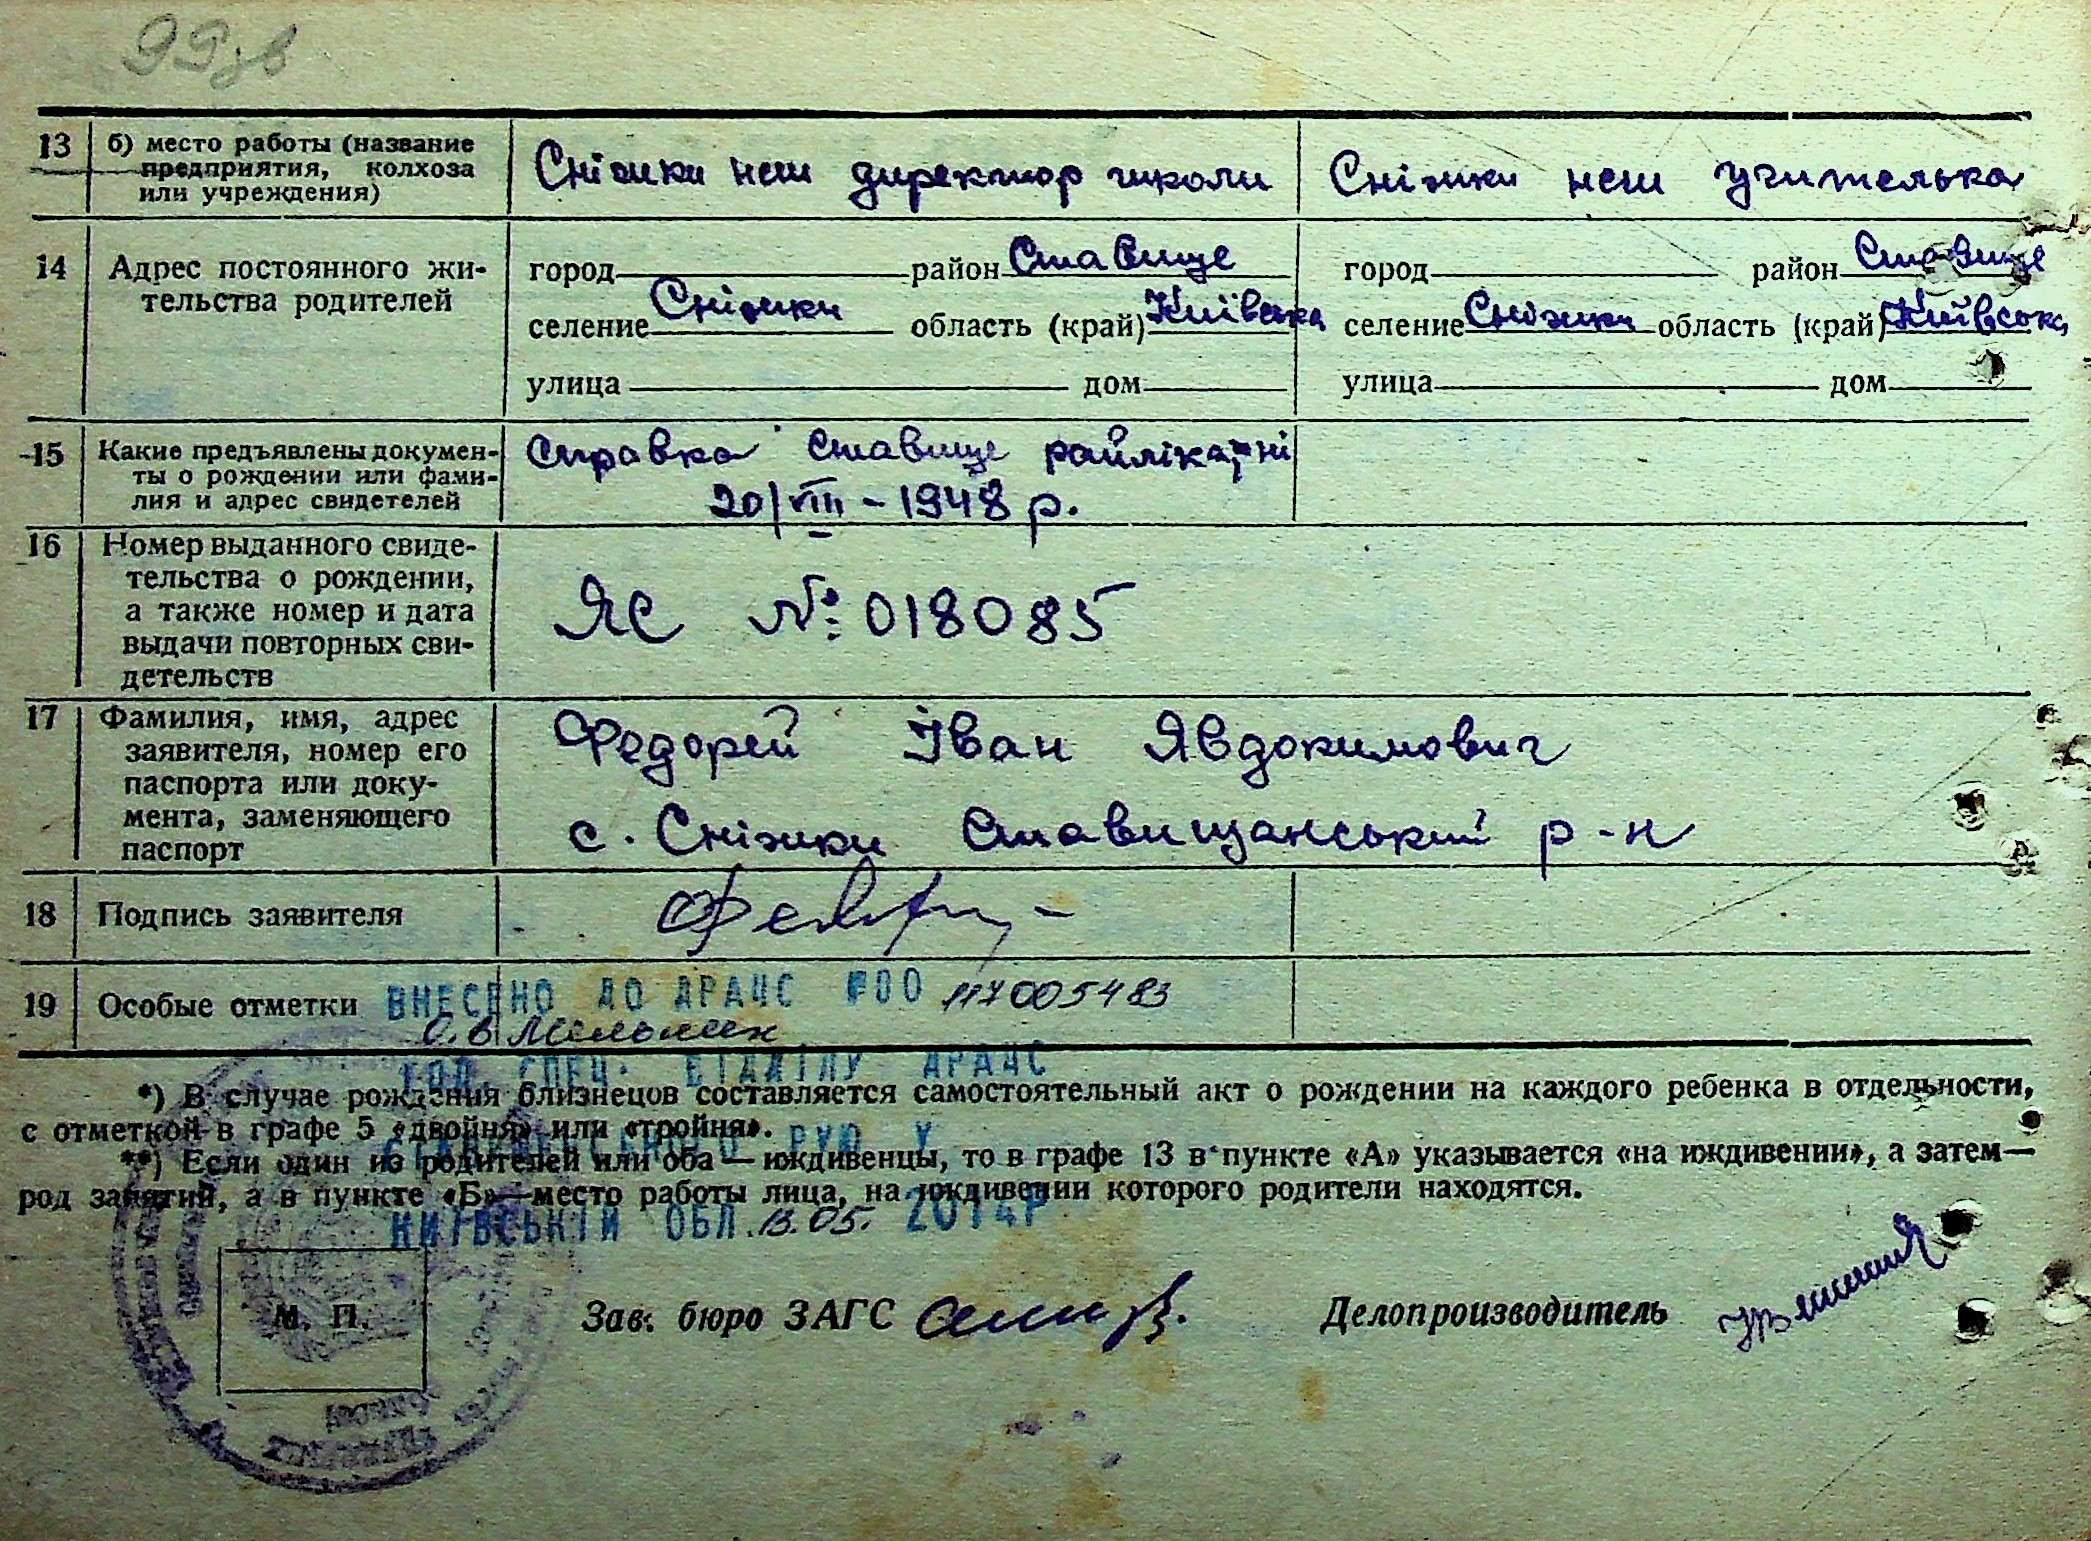 99зв
13 б) место работы (название Сніжки нсш директор школи Сніжки нсш учителька
предприятия, колхоза
или учреждения)
14 Адрес постоянного жи- город район Ставище город район Ставище
тельства родителей селение Сніжки область (край) Київська селение Сніжки область (край) Київська
улица дом улица дом
15 Какие предъявлены докумен- Справка Ставище райлікарні
ты о рождении или фами- 20/VIII - 1948 р.
лия и адрес свидетелей
16 Номер выданного свиде-
тельства о рождении,
а также номер и дата ЯС №: 018085
выдачи повторных сви-
детельств
17 Фамилия, имя, адрес Федорей Іван Явдокимович
заявителя, номер его
паспорта или доку-
мента, заменяющего с. Сніжки Ставищанський р-н
паспорт
18 Подпись заявителя
19 Особые отметки ВНЕСЕНО ДО ДРАЦС №00 117005483
О.В. Мельник
СПЕЦ. ВІДДІЛУ ДРАЦС
*) В случае рождения близнецов составляется самостоятельный акт о рождении на каждого ребенка в отдельности,
с отметкой в графе 5 «двойня» или «тройня».
РУЮ У
**) Если один из родителей или оба — иждивенцы, то в графе 13 в пункте «А» указывается «на иждивении», а затем—
род занятий, а в пункте «Б»—место работы лица, на иждивении которого родители находятся.
КИЇВСЬКІЙ ОБЛ. 13.05. 2014Р
М. П. Зав. бюро ЗАГС Делопроизводитель